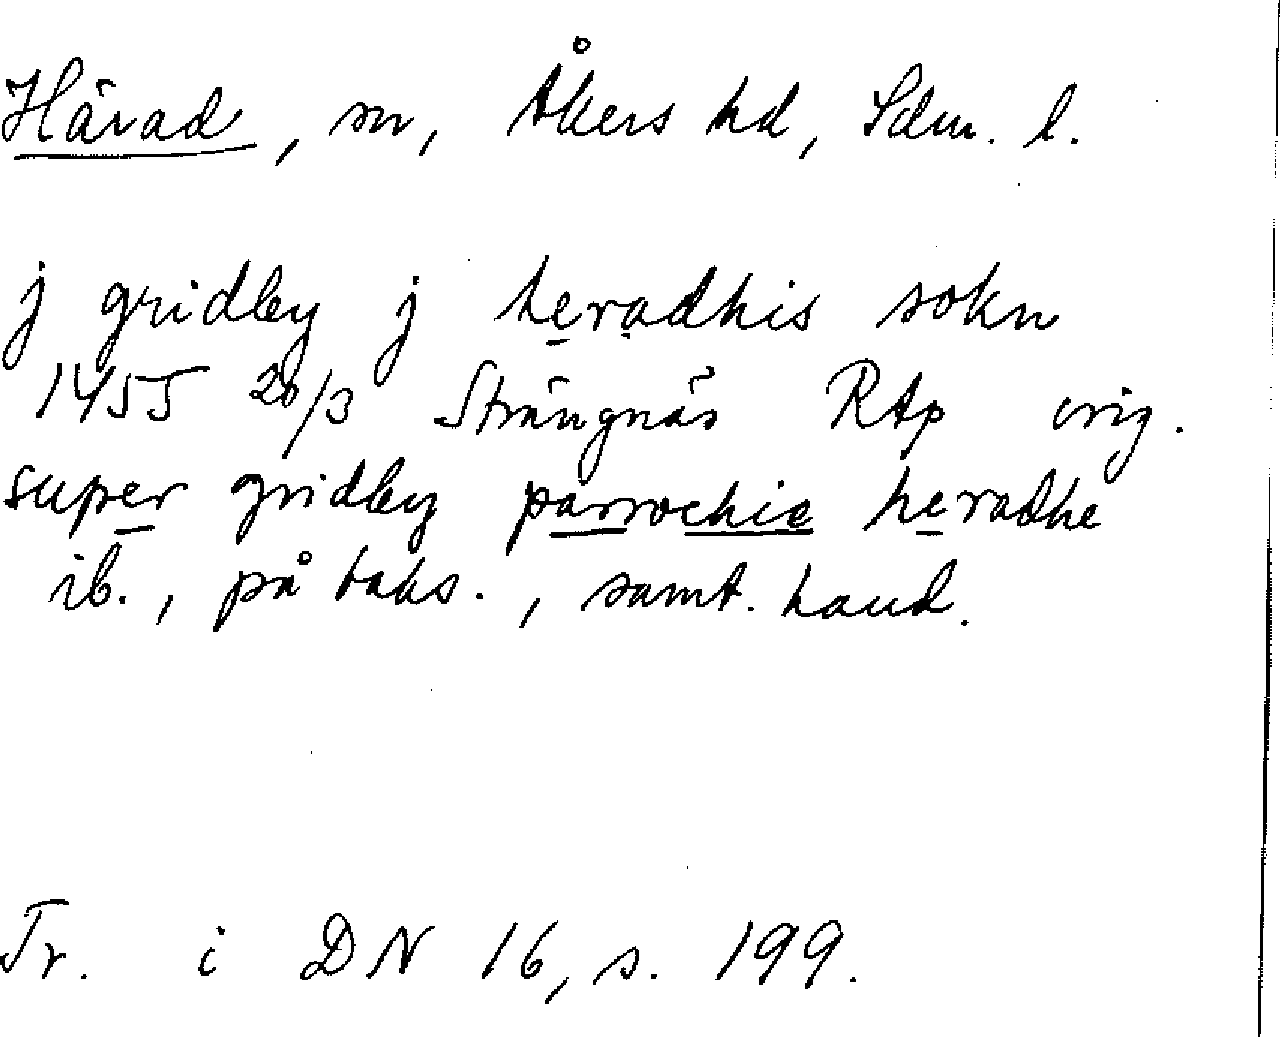 Härad, sn, Åkers hd, Sdm. l.
j gridby j heradhis sokn
1455 20/3 Strängnäs RAp orig.
super gridby parrochie heradhe
ib., på baks., samt. hand.
Tr. i DN 16, s. 199.